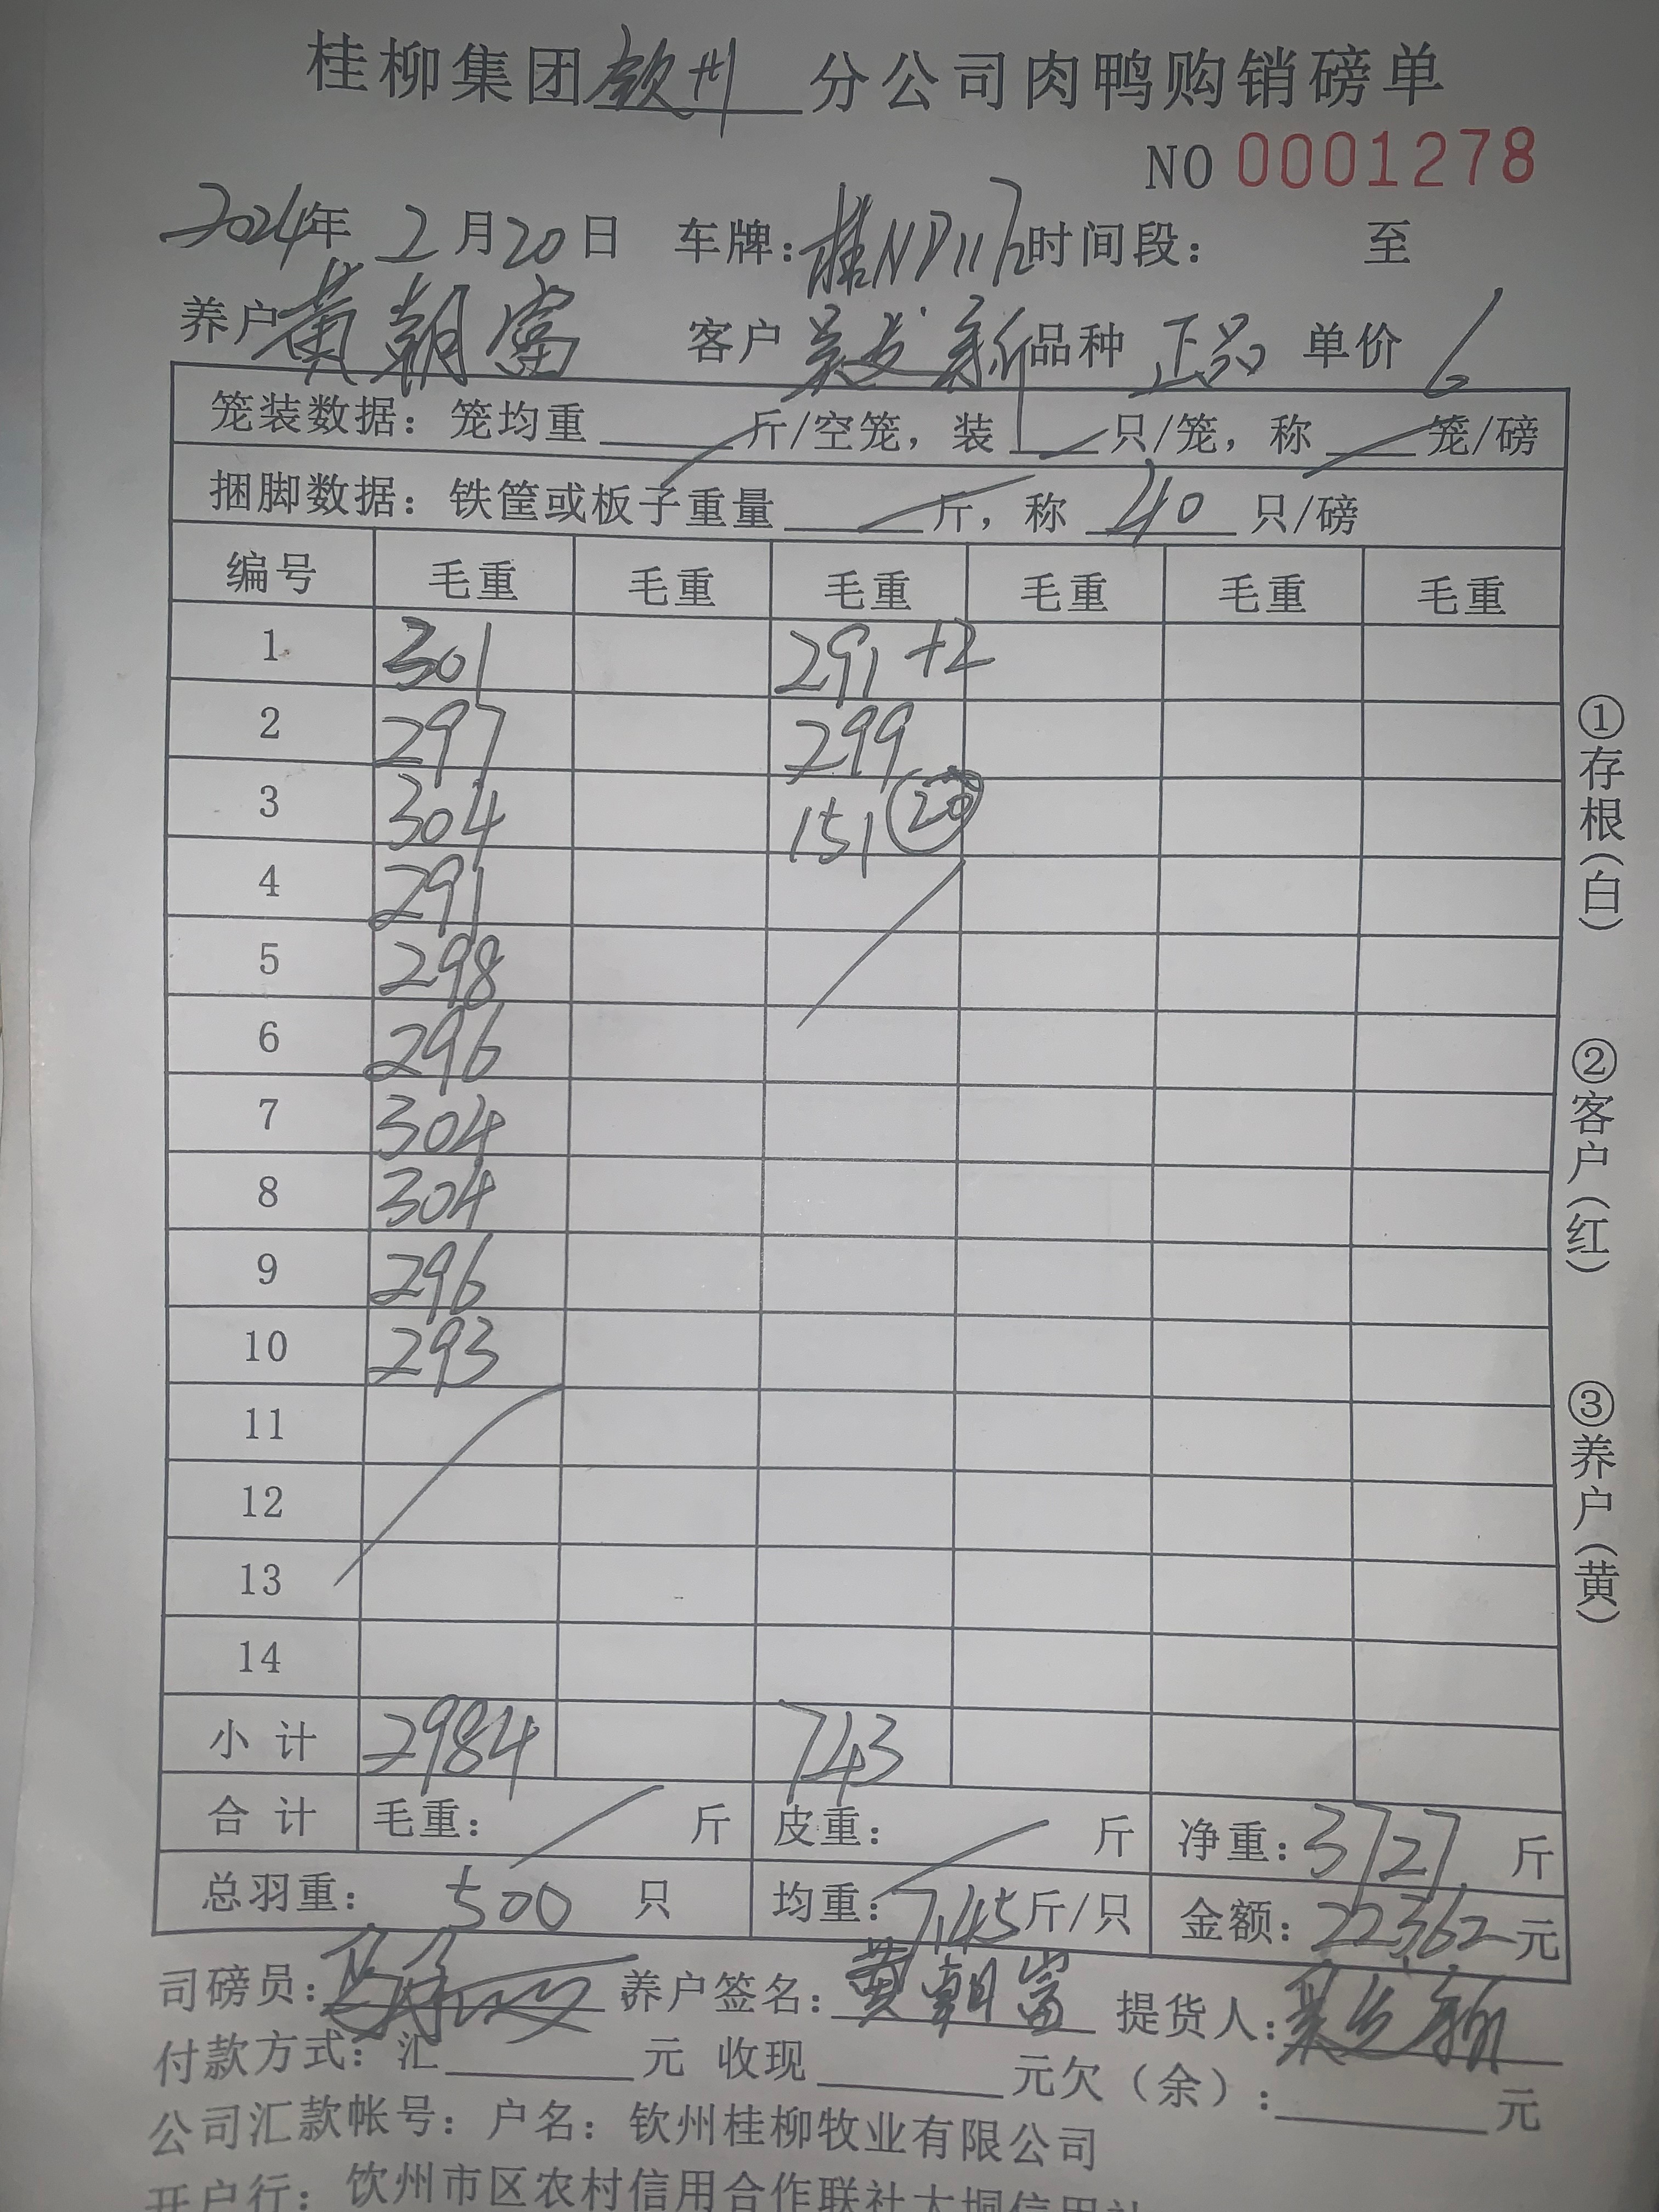 桂柳集团钦州分公司肉鸭购销磅单
NO 0001278
2024年 2月20日 车牌: 桂ND1172 时间段: 至
养户 黄朝富 客户 吴发新 品种 正品 单价 6
笼装数据: 笼均重 斤/空笼, 装 只/笼, 称 笼/磅
捆脚数据: 铁筐或板子重量 斤, 称 40 只/磅
编号 毛重 毛重 毛重 毛重 毛重 毛重
1 301 291+2
2 297 299
3 304 151 20
4 291
5 298
6 296
7 304
8 304
9 296
10 293
11
12
13
14
小计 2984 743
合计 毛重: 斤 皮重: 斤 净重: 3727 斤
总羽重: 500 只 均重: 7.45 斤/只 金额: 22362 元
司磅员: 养户签名: 黄朝富 提货人: 吴发新
付款方式: 汇 元 收现 元欠(余): 元
公司汇款帐号: 户名: 钦州桂柳牧业有限公司
开户行: 钦州市区农村信用合作联社大垌信用社
①存根(白)
②客户(红)
③养户(黄)